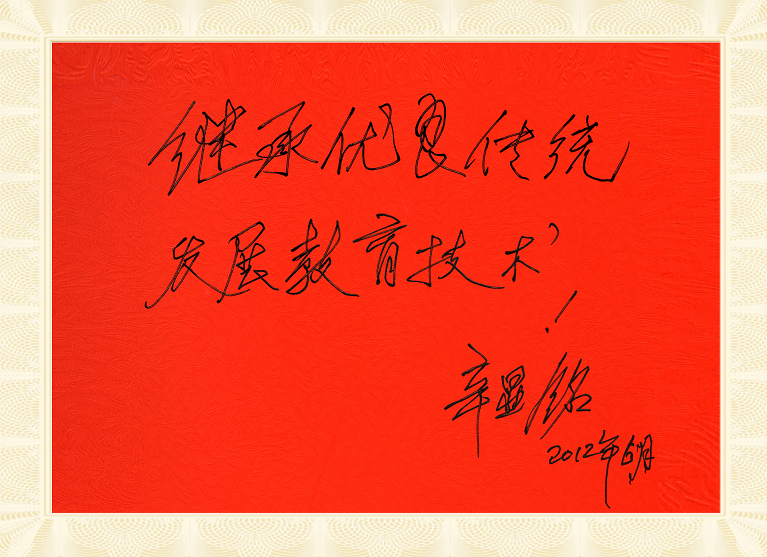 继承优良传统
发展教育技术
！
辛显铭
2012年6月